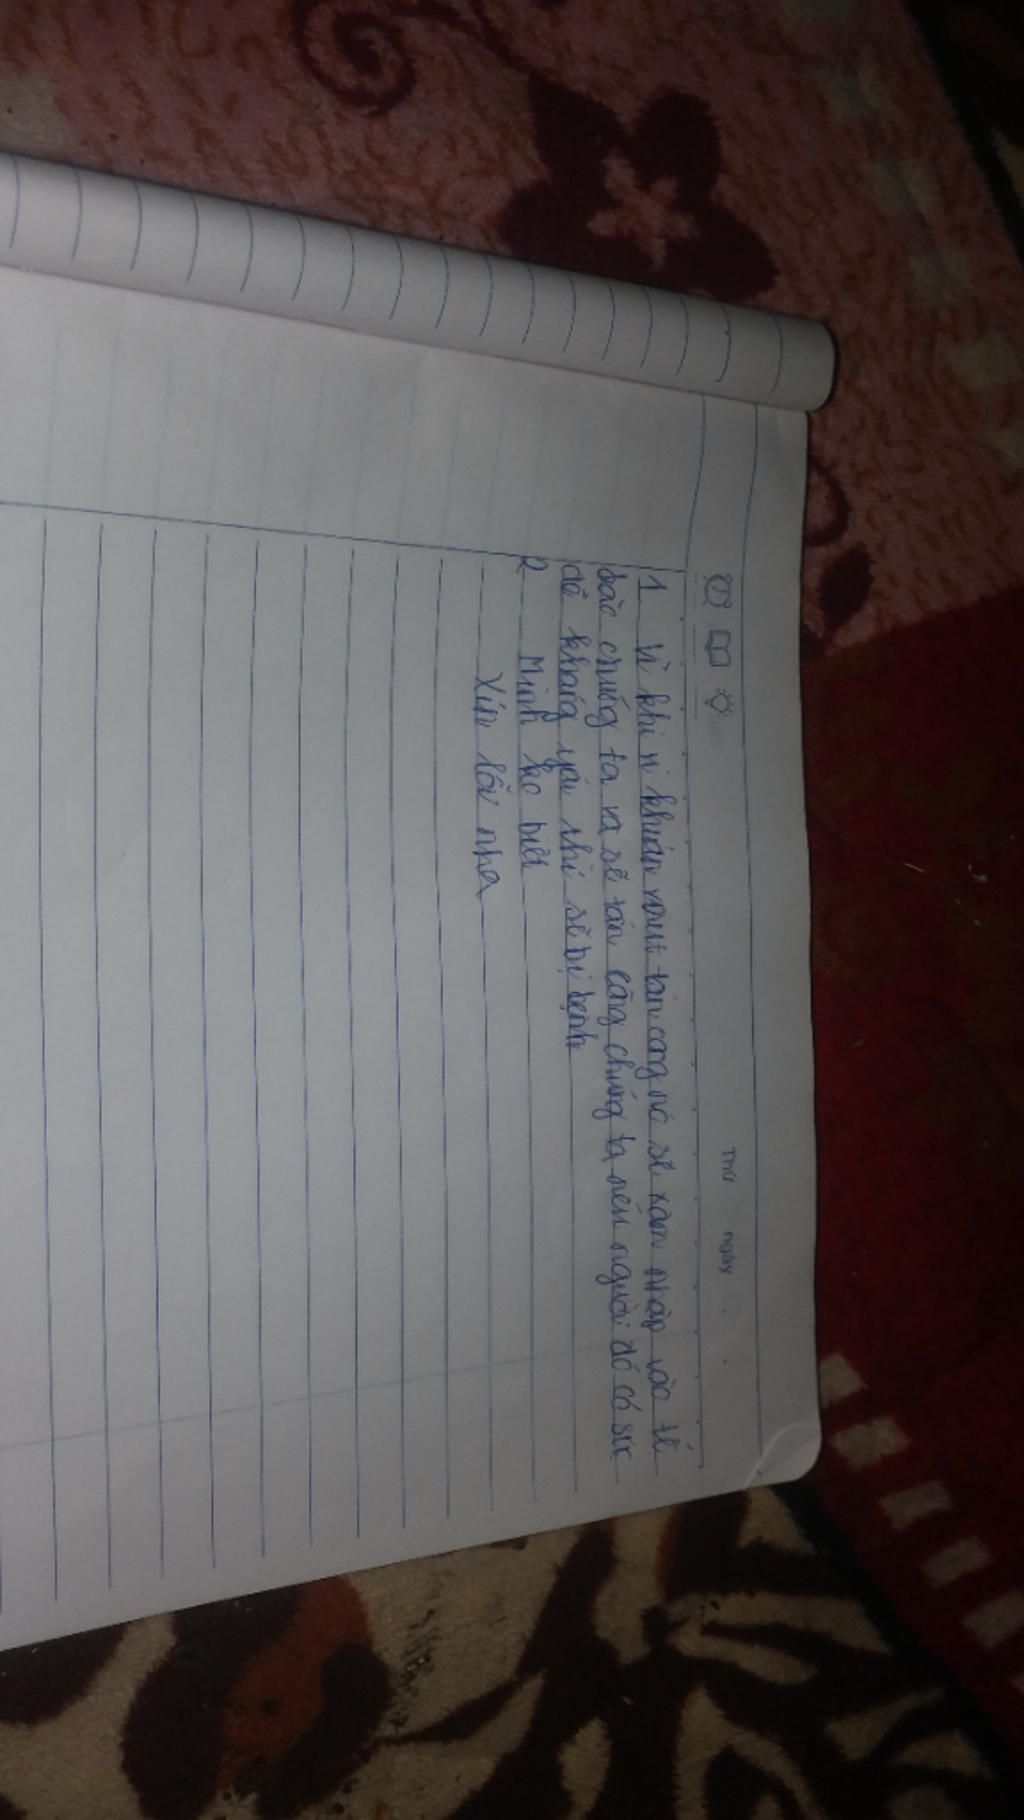 Thứ ngày
1 Vì khi vi khuẩn virut tấn công nó sẽ xâm nhập vào tế
bào chúng ta và sẽ tấn công chúng ta nếu người đó có sức
đề kháng yếu thì sẽ bị bệnh
2 Mình ko biết
Xin lỗi nha